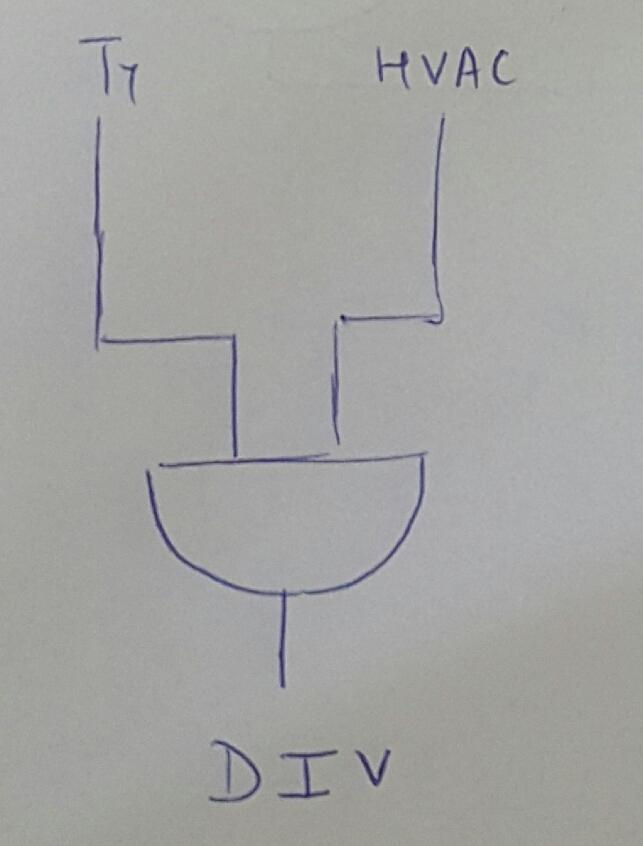 Ty HVAC
DIV